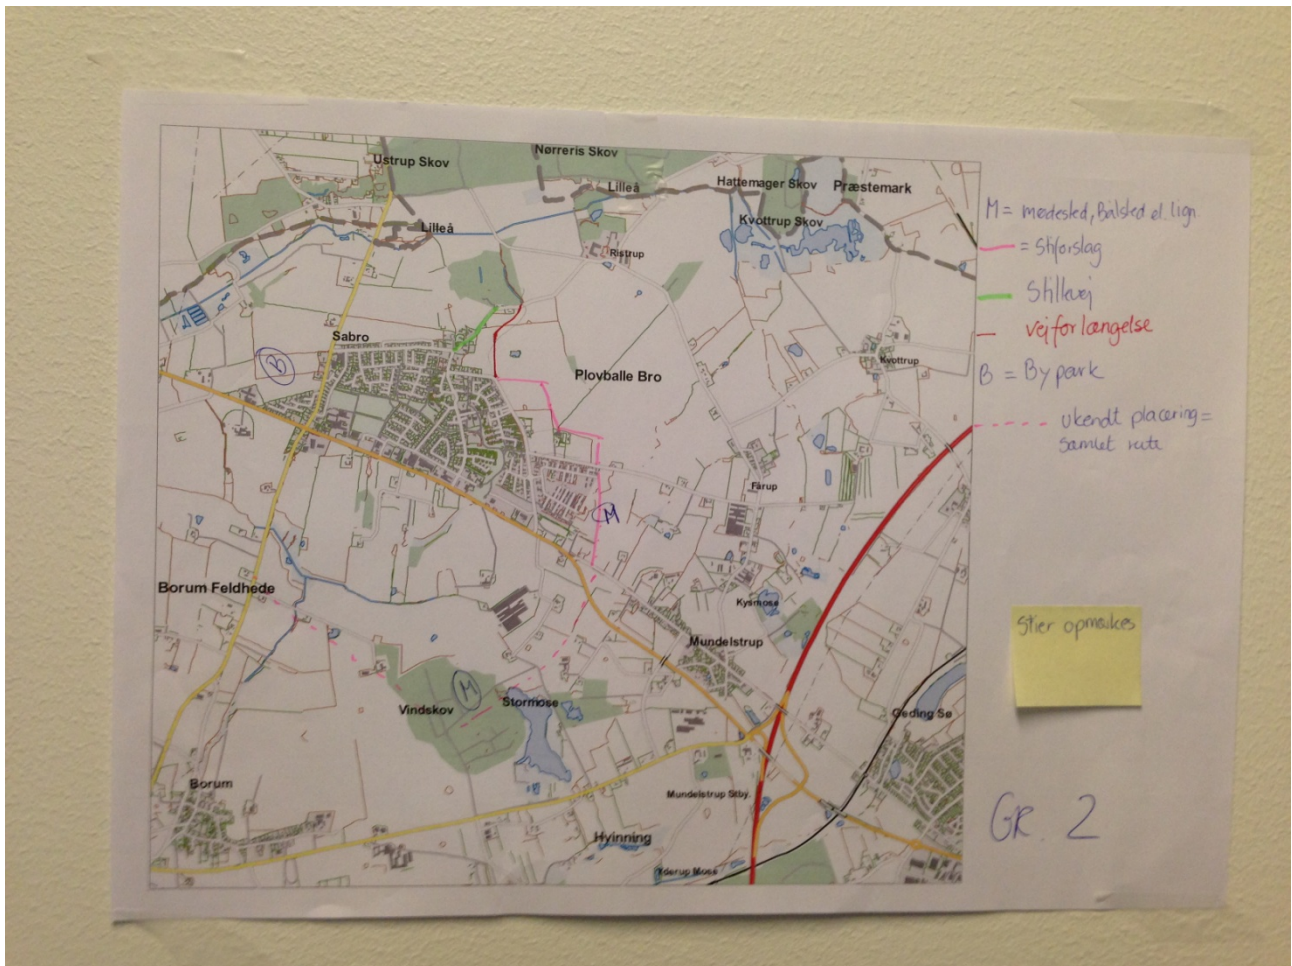 Ustrup Skov
Nørreris Skov
Lilleå
Hattemager Skov
Præstemark
Kvottrup Skov
Lilleå
Ristrup
Sabro
B
Plovballe Bro
Kvottrup
Fårup
M
Borum Feldhede
Kysmose
Mundelstrup
M
Vindskov
Stormose
Geding Sø
Borum
Mundelstrup Stby.
Hvinning
Yderup Mose
M = mødested, Bålsted el. lign.
= Stiforslag
Stillevej
vejforlængelse
B = Bypark
ukendt placering =
samlet rute
Stier opmærkes
GR. 2